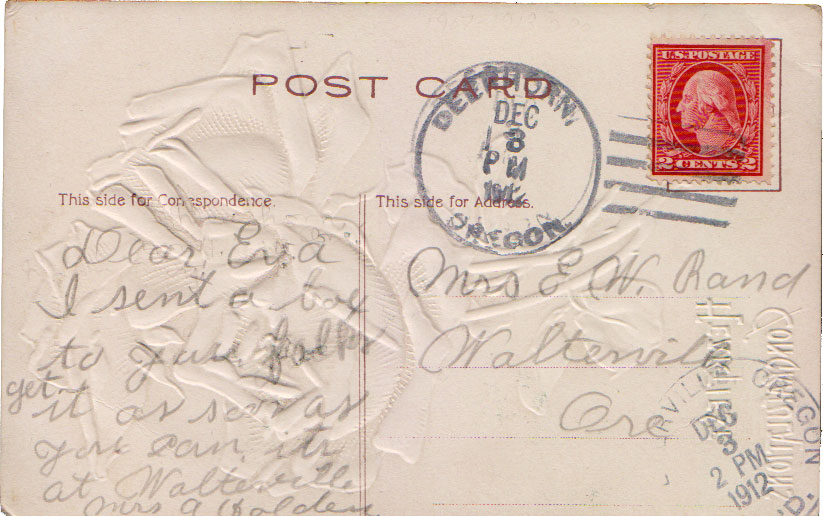 POST CARD
U.S. POSTAGE
2 CENTS 2
DEERHORN,
DEC
8
PM
1912
OREGON.
This side for Correspondence.
Dear Eva
I sent a box
to your folks
get
it as soon as
you can, its
at Walterville
Mrs A Holden
This side for Address.
Mrs E. W. Rand
Walterville
Ore
Heartiest
Congratulations
RVILLE OREGON
DEC
8
2 PM
1912